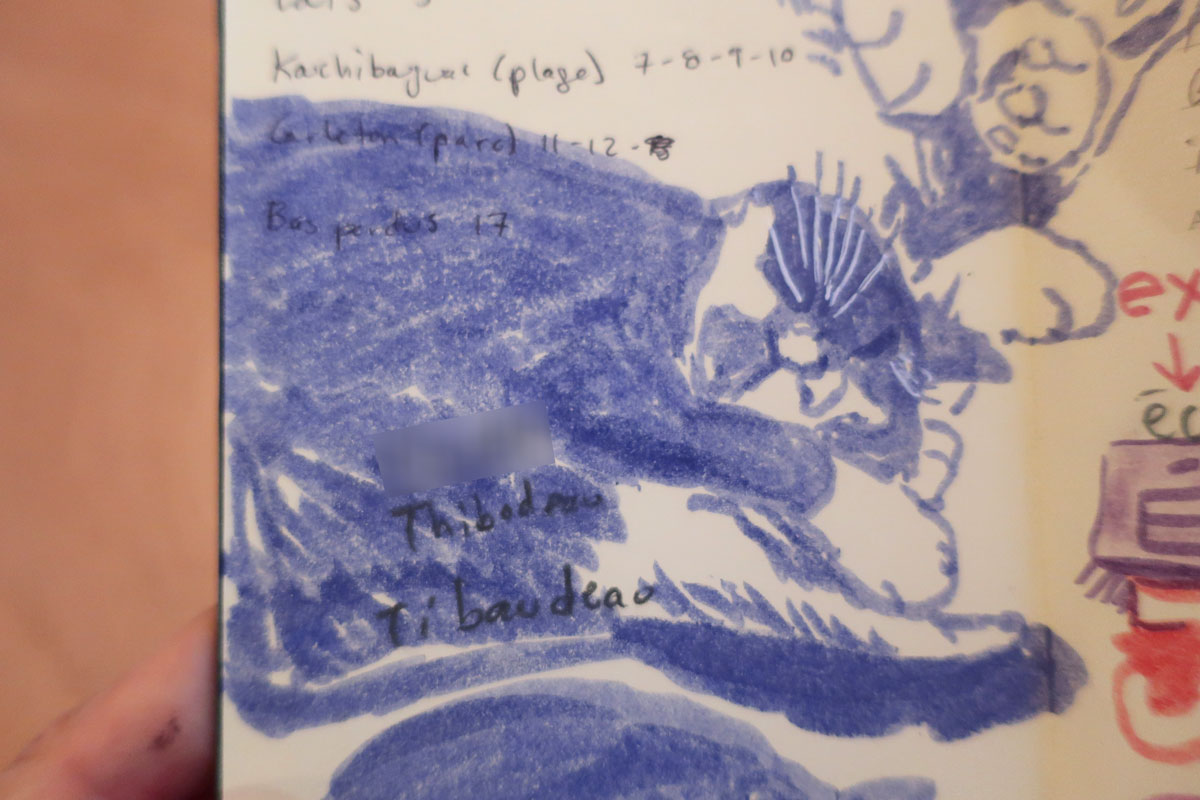 Kouchibaguac (plage) 7-8-9-10
Carleton (parc) 11-12-
Bas perdus 17
ex
éc
Thibodeau
Tibaudeao